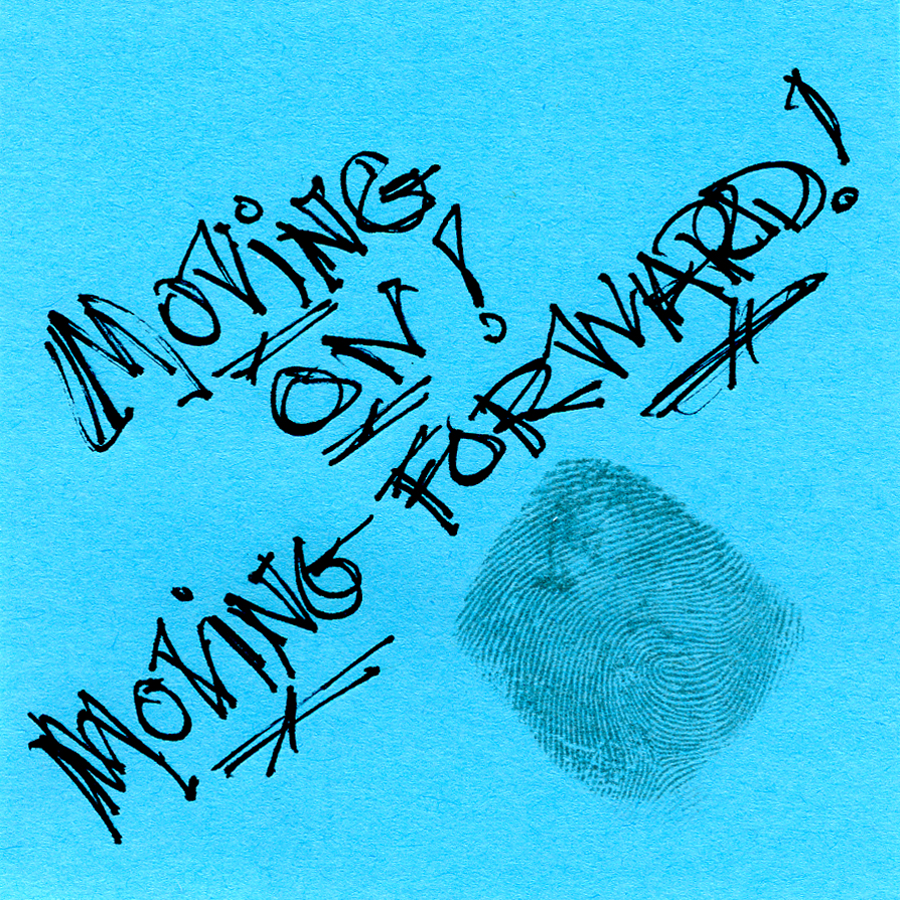 MOVING
ON!
MOVING FORWARD!